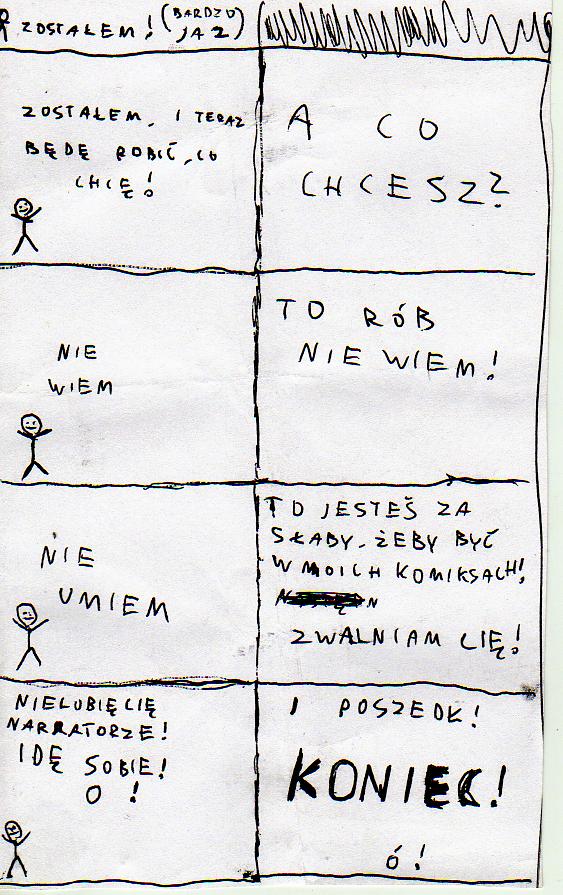 ZOSTAŁEM! (BARDZO
JA 2)
ZOSTAŁEM, I TERAZ
BĘDĘ ROBIĆ, CO
CHCĘ!
A CO
CHCESZ?
NIE
WIEM
TO RÓB
NIE WIEM!
NIE
UMIEM
TO JESTEŚ ZA
SŁABY, ŻEBY BYĆ
W MOICH KOMIKSACH!
ZWALNIAM CIĘ!
NIELUBIĘ CIĘ
NARRATORZE!
IDĘ SOBIE!
O !
I POSZEDŁ!
KONIEC!
Ó!